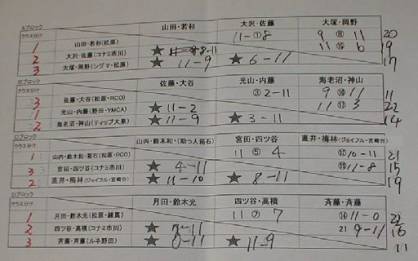 ブロック
クラス分け 山田・若杉 大沢・佐藤 大塚・岡野
1 山田・若杉(松原) ★ 8-11 11-①8 9 ⑧ 11 20
2 大沢・佐藤(コナミ市川) 11 ⑯ 6 19
3 大塚・岡野(シグマ・松原) ★ 11-9 ★ 6-11 17
ブロック
クラス分け 佐藤・大谷 光山・内藤 海老沼・神山
3 佐藤・大谷(松原・RCO) ③ 2-11 9 ⑩ 11 11
1 光山・内藤(野田・YMCA) ★ 11-2 11 ⑬ 3 22
2 海老沼・神山(ティップ大泉) ★ 11-9 ★ 3-11 14
ブロック
クラス分け 山内・鈴木和・(助っ人 宮田・四ツ谷 直井・梅林(ジョイフル・宮崎台)
1 11 ⑤ 4 ⑫ 10-11 21
3 宮田・四ツ谷(コナミ市川) ★ 4-11 11-8 15
2 直井・梅林(ジョイフル・宮崎台) ★ 11-10 ★ 8-11 19
ブロック
クラス分け 月田・鈴木光 四ツ谷・高橋 斉藤・斉藤
1 月田・鈴木光(松原・練馬) 11 ⑦ 7 ⑭ 11-0 22
2 四ツ谷・高橋(コナミ市川) ★ 7-11 21 9-11 16
3 斉藤・斉藤(ルネ野田) ★ 0-11 ★ 11-9 11